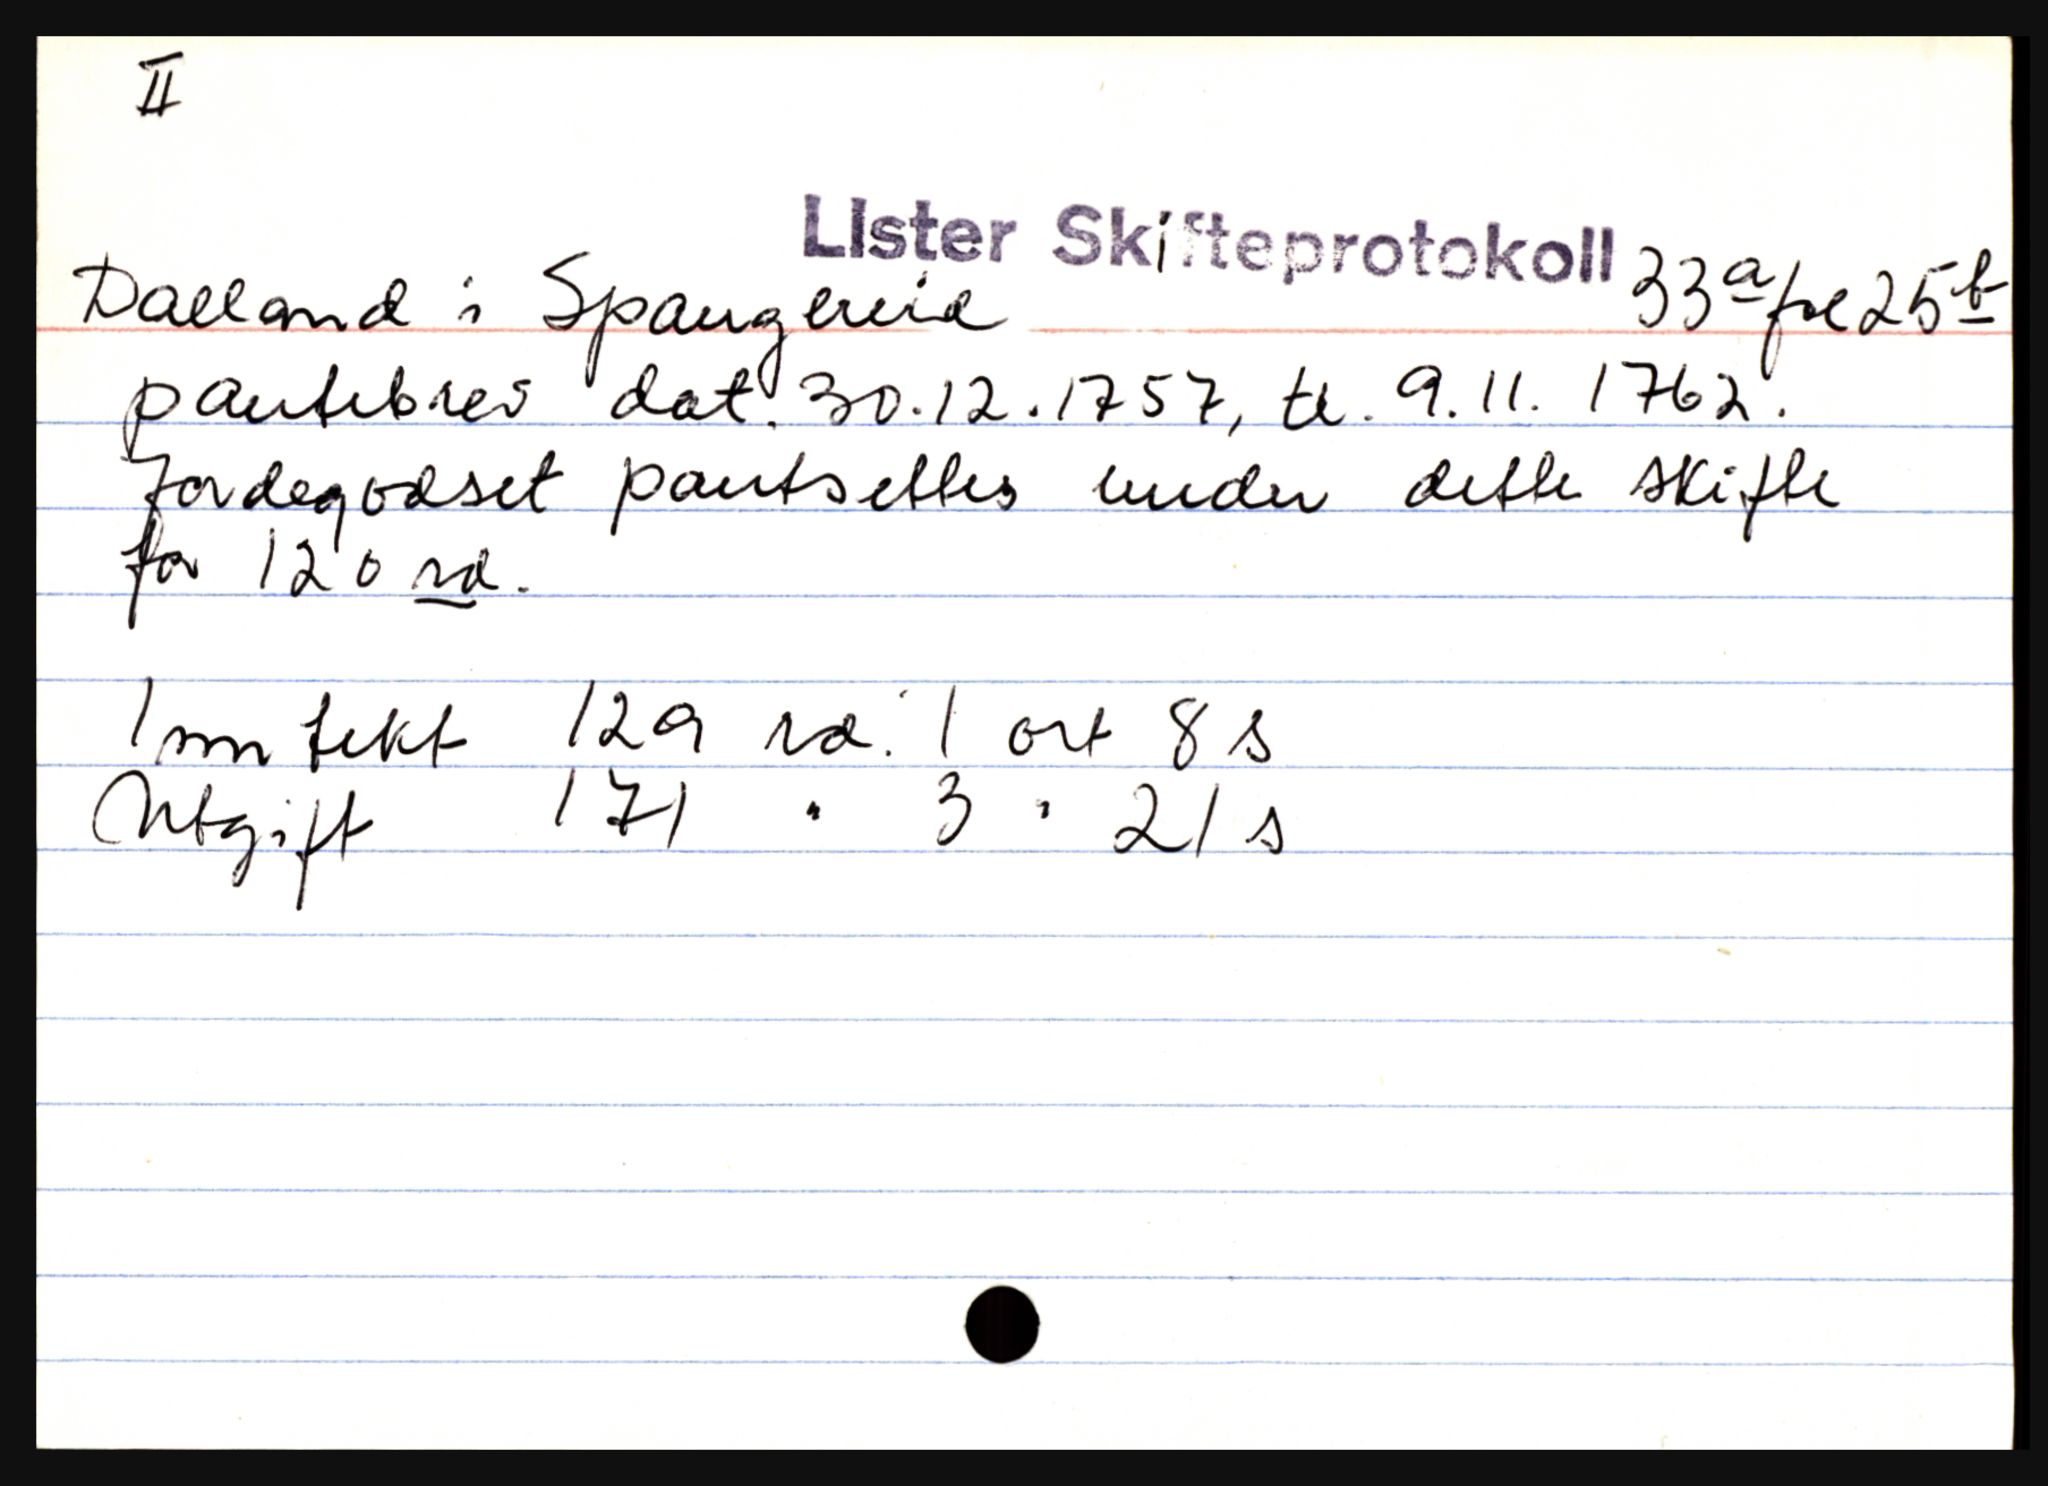 II
Lister Skifteprotokoll
Dalland i Spangereid 33a fol 25b
pantebrev dat. 30.12.1757, tl. 9.11. 1762.
Jordegodset pantsettes under dette skifte
for 120 rd.
Inntekt 129 rd. 1 ort 8 s
Utgift 171 " 3 " 21 s